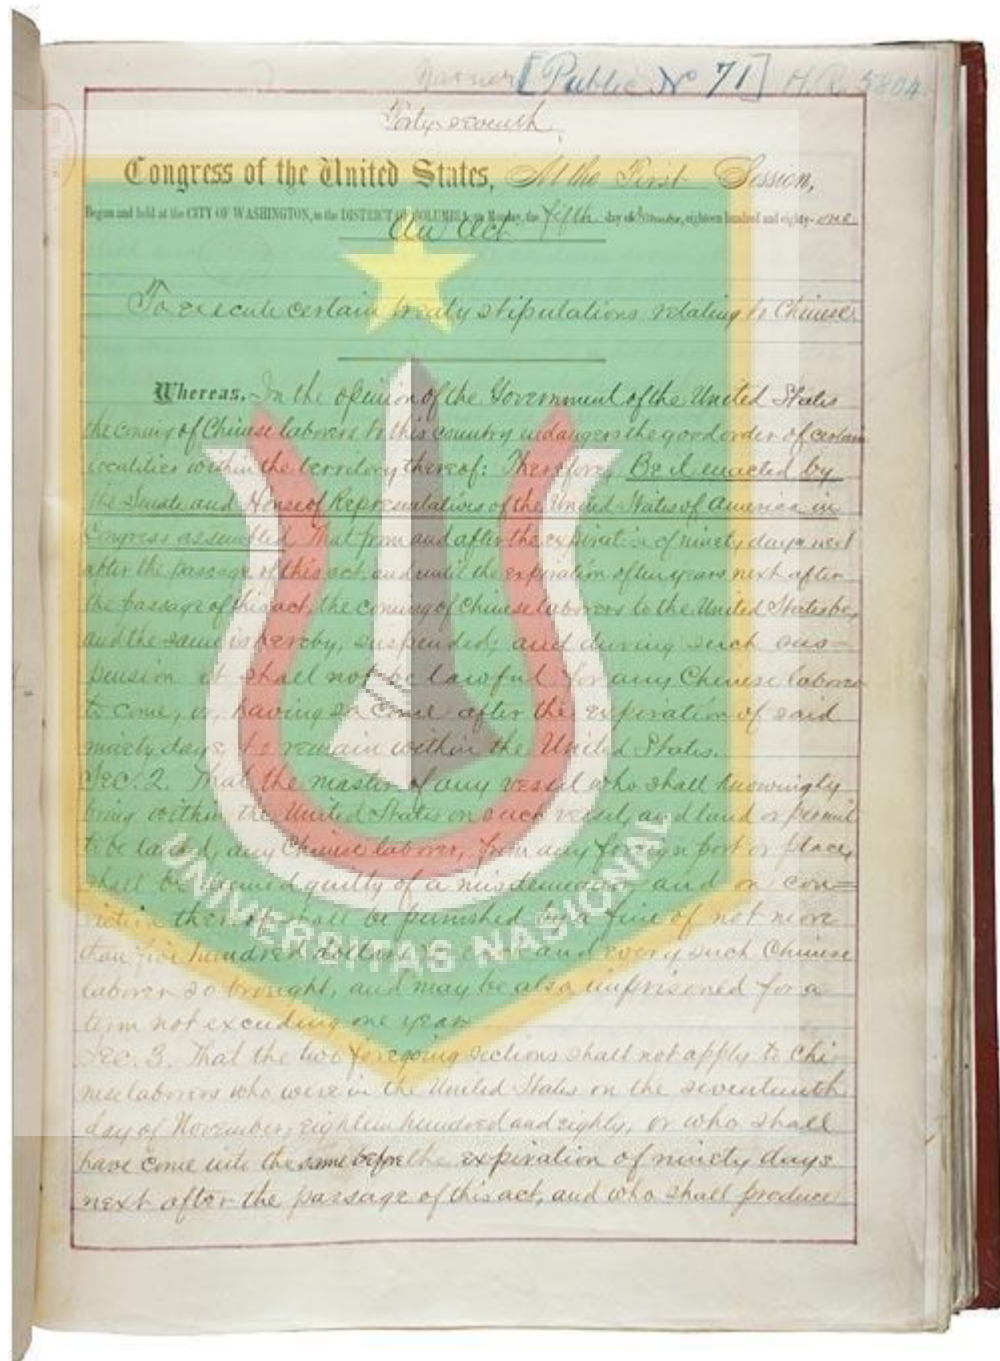 [Public No 71] H.R. 5804
Forty-seventh
Congress of the United States, At the First Session,
Begun and held at the CITY OF WASHINGTON, in the DISTRICT OF COLUMBIA, on Monday, the fifth day of December, eighteen hundred and eighty-one
An Act
To execute certain treaty stipulations relating to Chinese.
Whereas, In the opinion of the Government of the United States
the coming of Chinese laborers to this country endangers the good order of certain
localities within the territory thereof: Therefore, Be it enacted by
the Senate and House of Representatives of the United States of America in
Congress assembled, That from and after the expiration of ninety days next
after the passage of this act, and until the expiration of ten years next after
the passage of this act, the coming of Chinese laborers to the United States be,
and the same is hereby, suspended; and during such sus=
pension it shall not be lawful for any Chinese laborer
to come, or, having so come after the expiration of said
ninety days, to remain within the United States.
Sec. 2. That the master of any vessel who shall knowingly
bring within the United States on such vessel, and land or permit
to be landed, any Chinese laborer, from any foreign port or place,
shall be deemed guilty of a misdemeanor, and on con=
viction thereof shall be punished by a fine of not more
than five hundred dollars for each and every such Chinese
laborer so brought, and may be also imprisoned for a
term not exceeding one year.
Sec. 3. That the two foregoing sections shall not apply to Chi
nese laborers who were in the United States on the seventeenth
day of November, eighteen hundred and eighty, or who shall
have come into the same before the expiration of ninety days
next after the passage of this act, and who shall produce
UNIVERSITAS NASIONAL